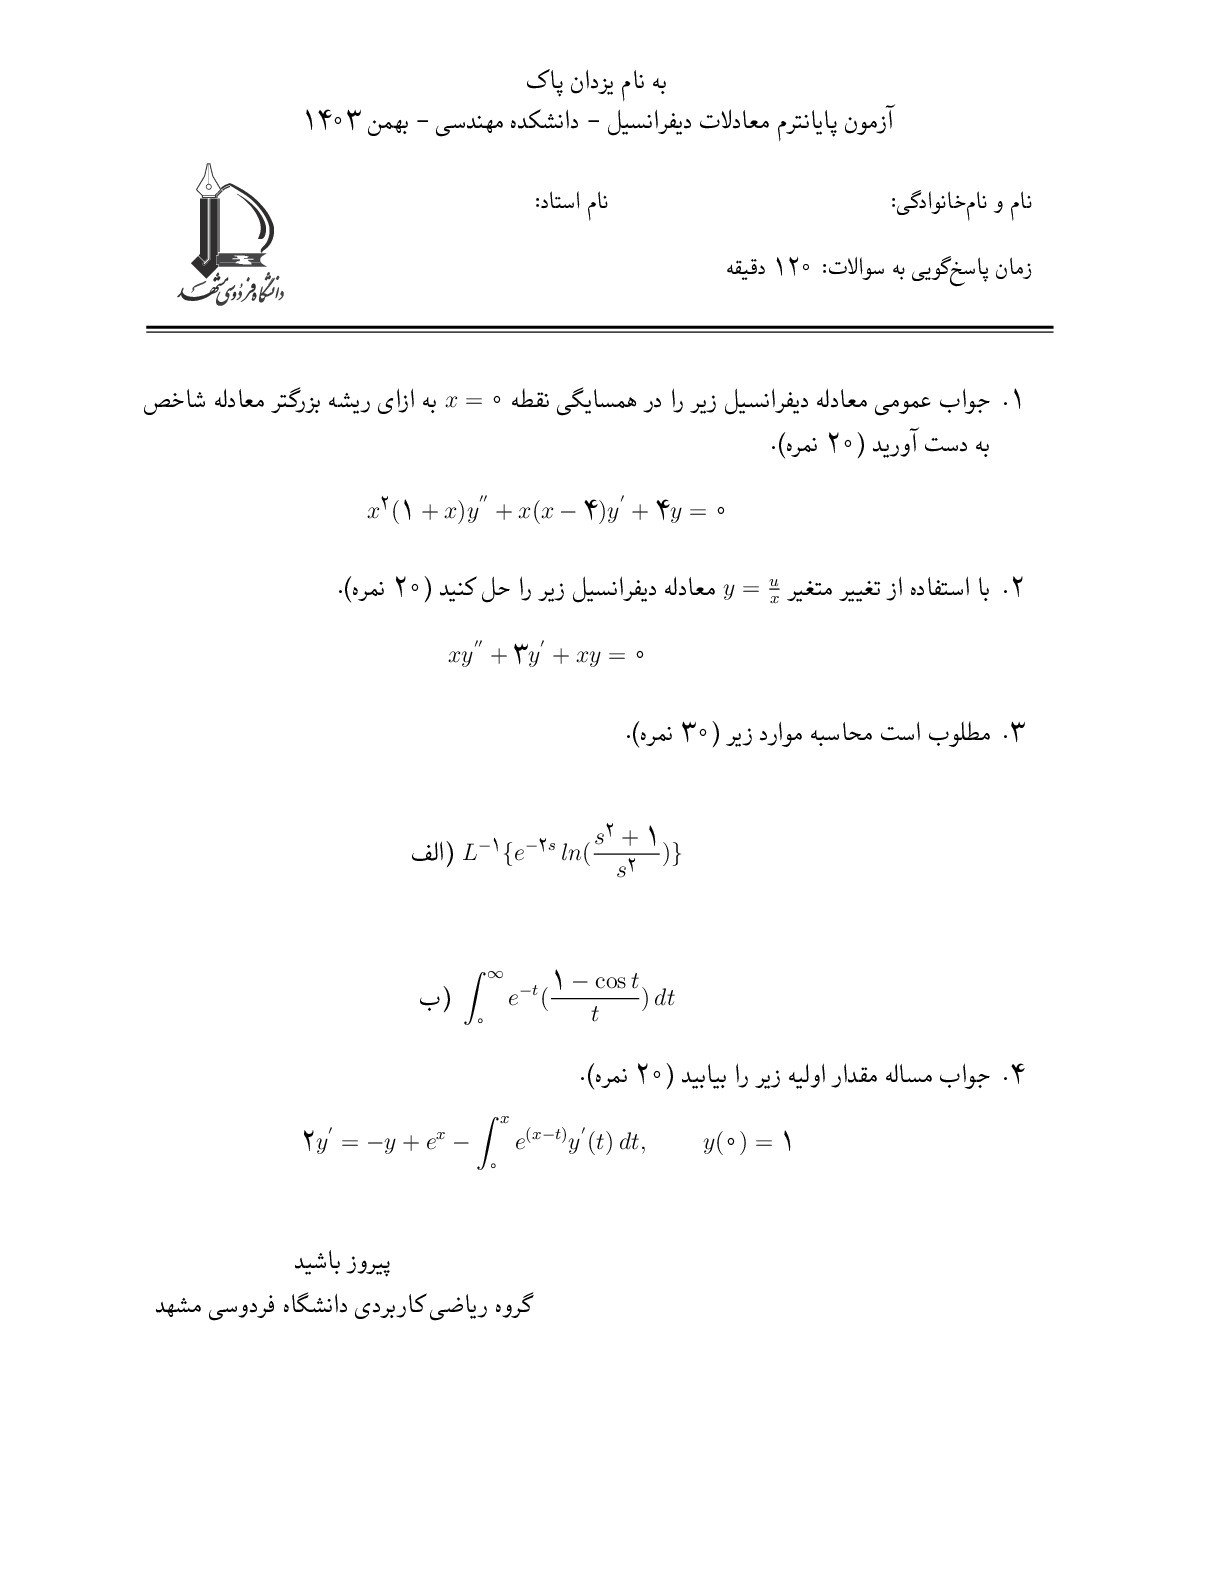 به نام یزدان پاک
آزمون پایانترم معادلات دیفرانسیل - دانشکده مهندسی - بهمن ۱۴۰۳
نام و نام‌خانوادگی: نام استاد:
زمان پاسخ‌گویی به سوالات: ۱۲۰ دقیقه
دانشگاه فردوسی مشهد
۱. جواب عمومی معادله دیفرانسیل زیر را در همسایگی نقطه x = ۰ به ازای ریشه بزرگتر معادله شاخص
به دست آورید (۲۰ نمره).
x^۲(۱ + x)y'' + x(x − ۴)y' + ۴y = ۰
۲. با استفاده از تغییر متغیر y = u/x معادله دیفرانسیل زیر را حل کنید (۲۰ نمره).
xy'' + ۳y' + xy = ۰
۳. مطلوب است محاسبه موارد زیر (۳۰ نمره).
الف) L^{−۱}{e^{−۲s} ln((s^۲ + ۱)/s^۲)}
ب) ∫_۰^∞ e^{−t}((۱ − cos t)/t) dt
۴. جواب مساله مقدار اولیه زیر را بیابید (۲۰ نمره).
۲y' = −y + e^x − ∫_۰^x e^{(x−t)}y'(t) dt, y(۰) = ۱
پیروز باشید
گروه ریاضی کاربردی دانشگاه فردوسی مشهد